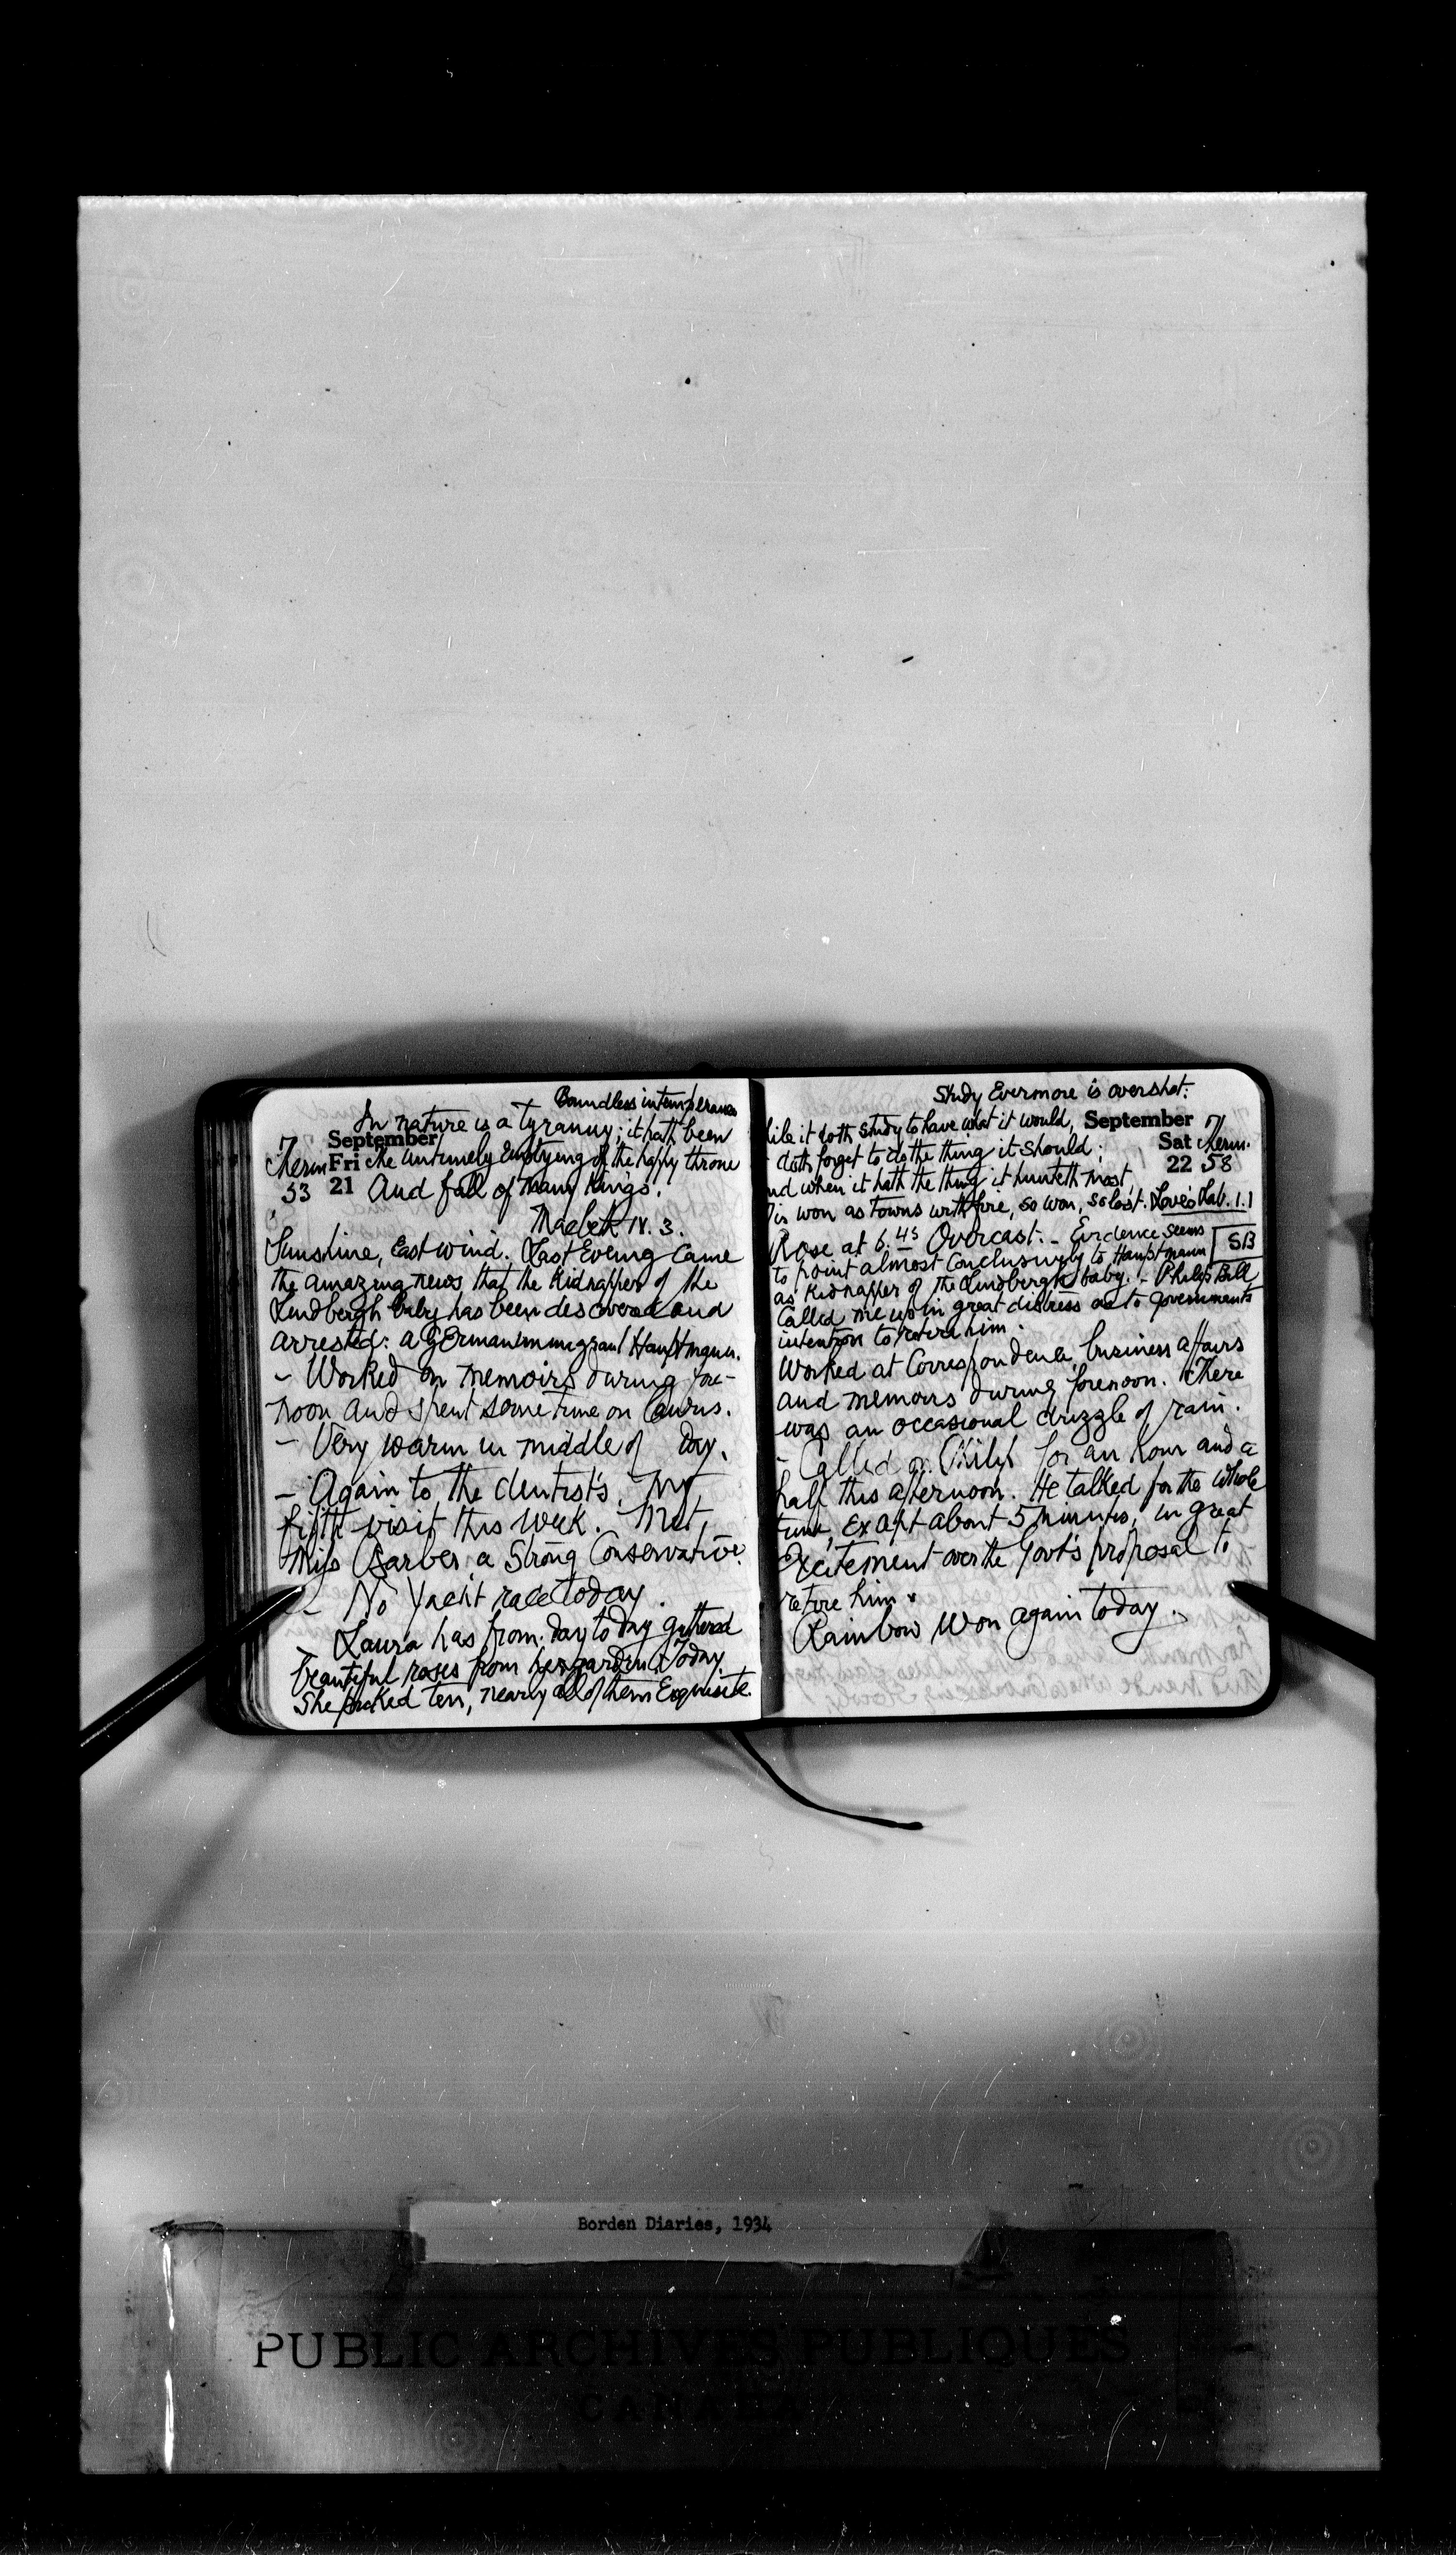 Boundless intemperance
In nature is a Tyranny; it hath been
September
7
Therm Fri The untimely Emptying of the happy throne
53 21 And fall of many Kings.
Macbeth IV. 3.
Sunshine, East wind. Last Evening came
the amazing news that the Kidnapper of the
Lindbergh baby has been discovered and
arrested: a German immigrant Hauptmann.
- Worked on memoirs during fore-
noon and spent some time on lawns.
- Very warm in middle of day.
- Again to the dentist's. My
fifth visit this week. Met
Miss Barber, a Strong Conservative.
- No Yacht race today.
- Laura has from day to day gathered
beautiful roses from her garden. Today
She picked ten, nearly all of them Exquisite.
Study Evermore is overshot:
hile it doth Study to have what it would, September 7
doth forget to do the thing it should; Sat Therm.
nd when it hath the thing it hunteth most, 22 58
is won as towns with fire, so won, so lost. Love's Lab. 1.1
Rose at 6.45 Overcast. - Evidence seems SB
to point almost conclusively to Hauptmann
as Kidnapper of the Lindbergh baby. - Philip Bell
Called me up in great distress as to Governments
intention to retire him.
Worked at Correspondence, business affairs
and memoirs during forenoon. There
was an occasional drizzle of rain.
- Called on Philip for an hour and a
half this afternoon. He talked for the whole
time, Except about 5 minutes, in great
Excitement over the Govt's proposal to
retire him.
Rainbow Won again today.
Borden Diaries, 1934
PUBLIC ARCHIVES PUBLIQUES
CANADA